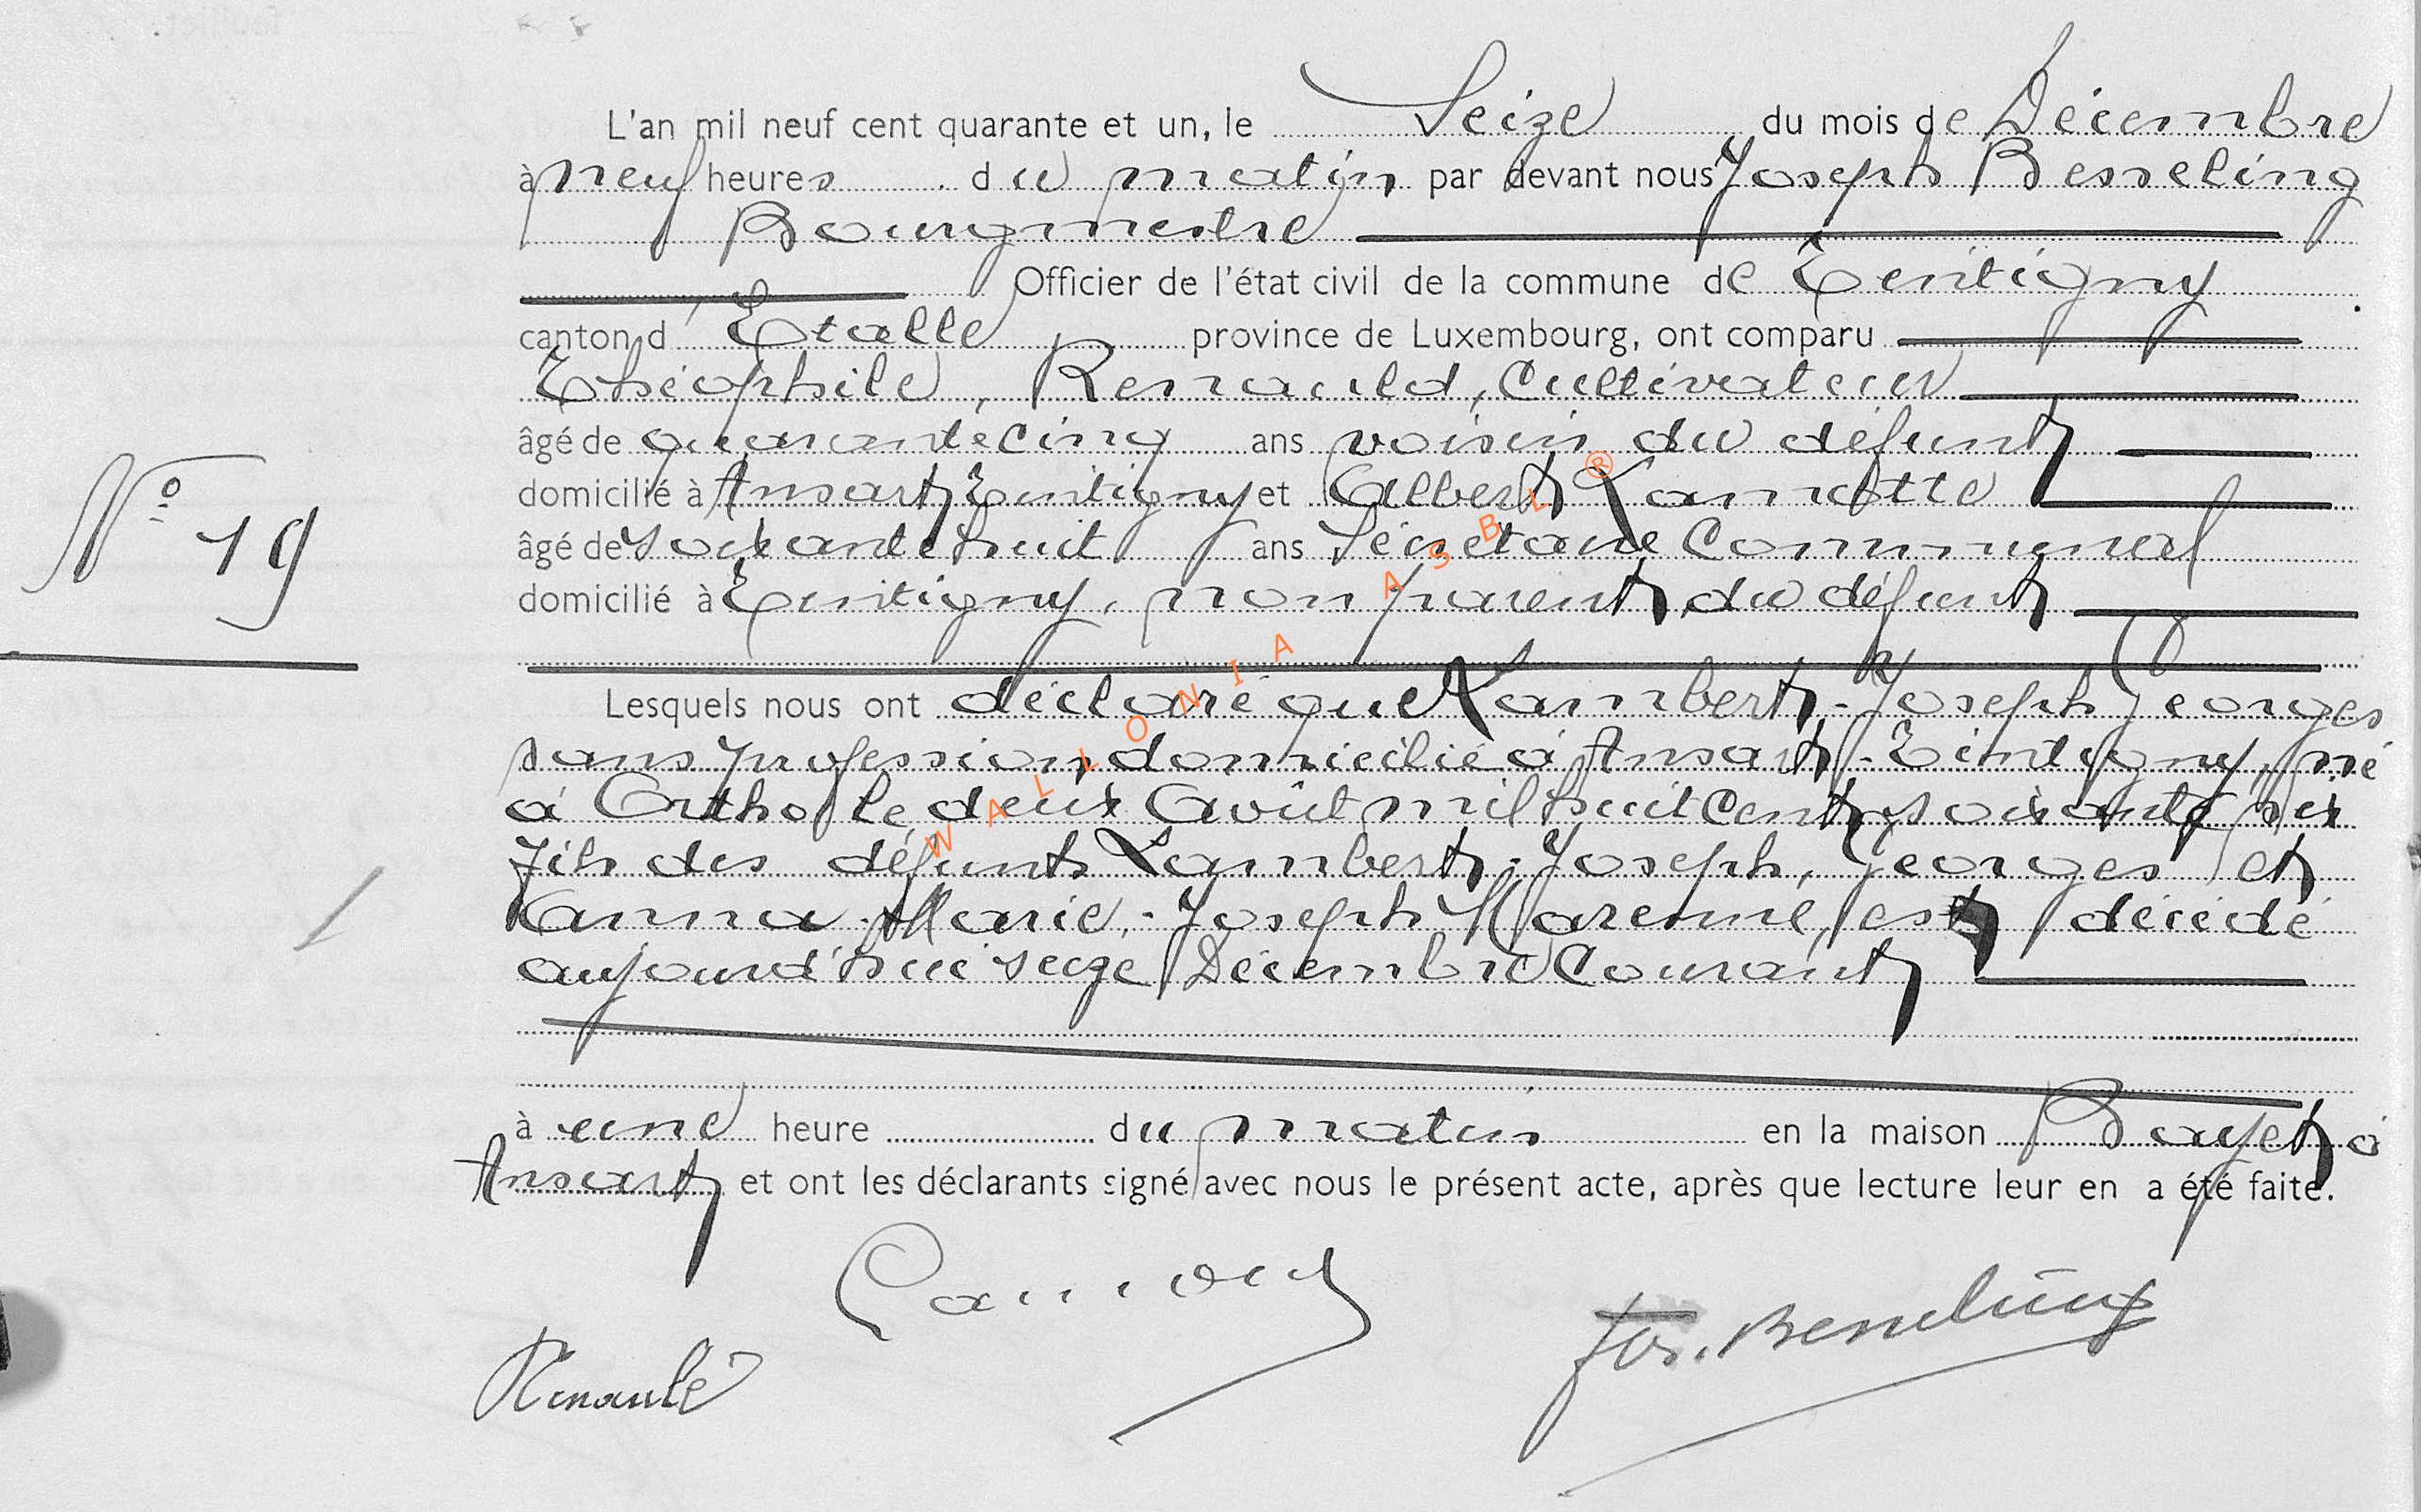 L'an mil neuf cent quarante et un, le Seize du mois de Décembre
à neuf heures du matin par devant nous Joseph Besseling
Bourgmestre
Officier de l'état civil de la commune de Tintigny
canton d'Etalle province de Luxembourg, ont comparu
Théophile, Renauld, Cultivateur
âgé de quarante cinq ans voisin du défunt
domicilié à Ansart Tintigny et Albert Lamotte
âgé de soixante huit ans Secrétaire Communal
N° 19
domicilié à Tintigny, non parent du défunt
Lesquels nous ont déclaré que Lambert-Joseph Georges
sans profession, domicilié à Ansart-Tintigny, né
à Ortho le deux Août mil huit cent soixante six
fils des défunts Lambert-Joseph, Georges et
Anna-Marie-Joseph Marenne, est décédé
aujourd'hui seize Décembre Courant
à une heure du matin en la maison Bayet à
Ansart et ont les déclarants signé avec nous le présent acte, après que lecture leur en a été faite.
Jos. Besseling
Renauld
WALLONIA ASBL ®